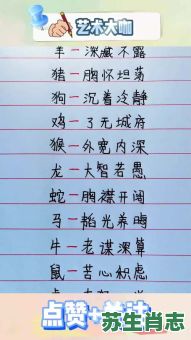 艺术大咖
羊一深藏不露
猪一胸怀坦荡
狗一沉着冷静
鸡一了无城府
猴一外宽内深
龙一大智若愚
蛇一胸襟开阔
马一韬光养晦
牛一老谋深算
鼠一苦心积虑
点赞+关注
苏生肖志